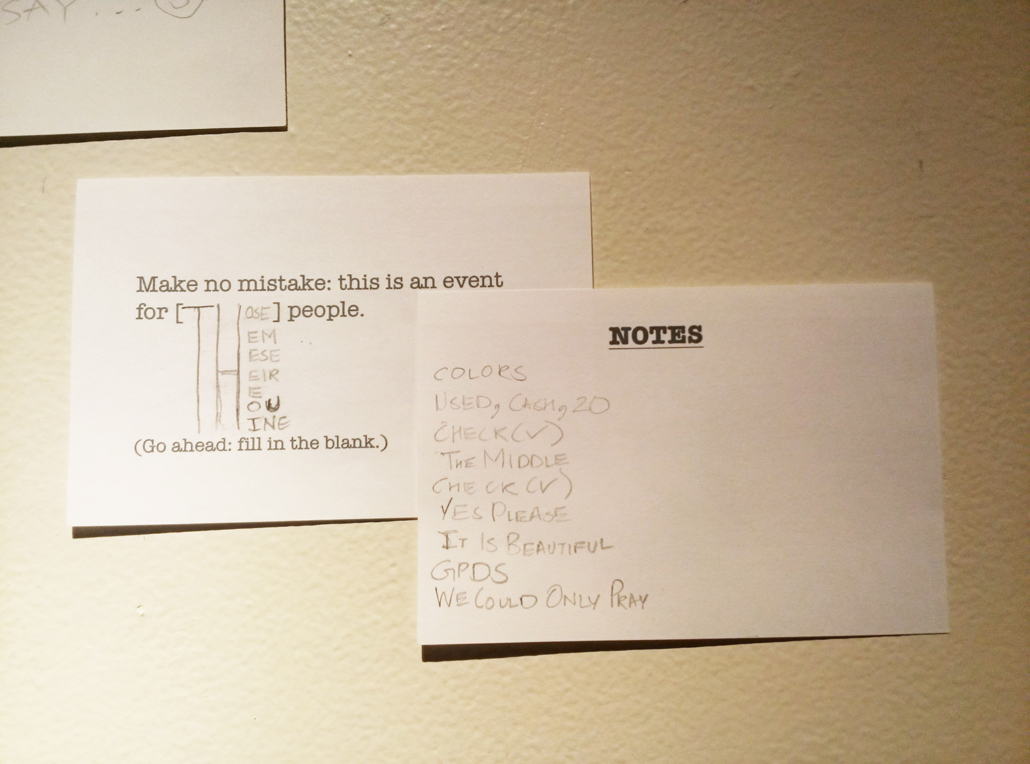 SAY...
Make no mistake: this is an event
for [THOSE] people.
EM
ESE
EIR
E
OU
INE
(Go ahead: fill in the blank.)
NOTES
COLORS
USED, CASH, 20
CHECK(V)
THE MIDDLE
CHECK(V)
YES PLEASE
IT IS BEAUTIFUL
GPDS
WE COULD ONLY PRAY